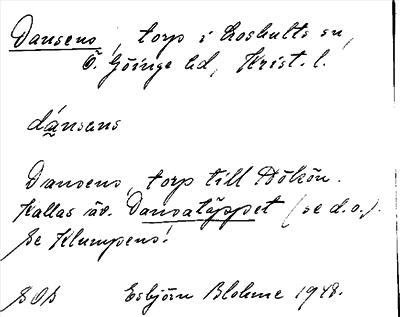 Dansens, torp i Loshults sn,
Ö. Göinge hd, Krist. l.
dánsens
Dansens, torp till Hökön.
Kallas äv. Dansatäppet (se d.o.).
Se Klumpens!
SOS Esbjörn Blohme 1948.